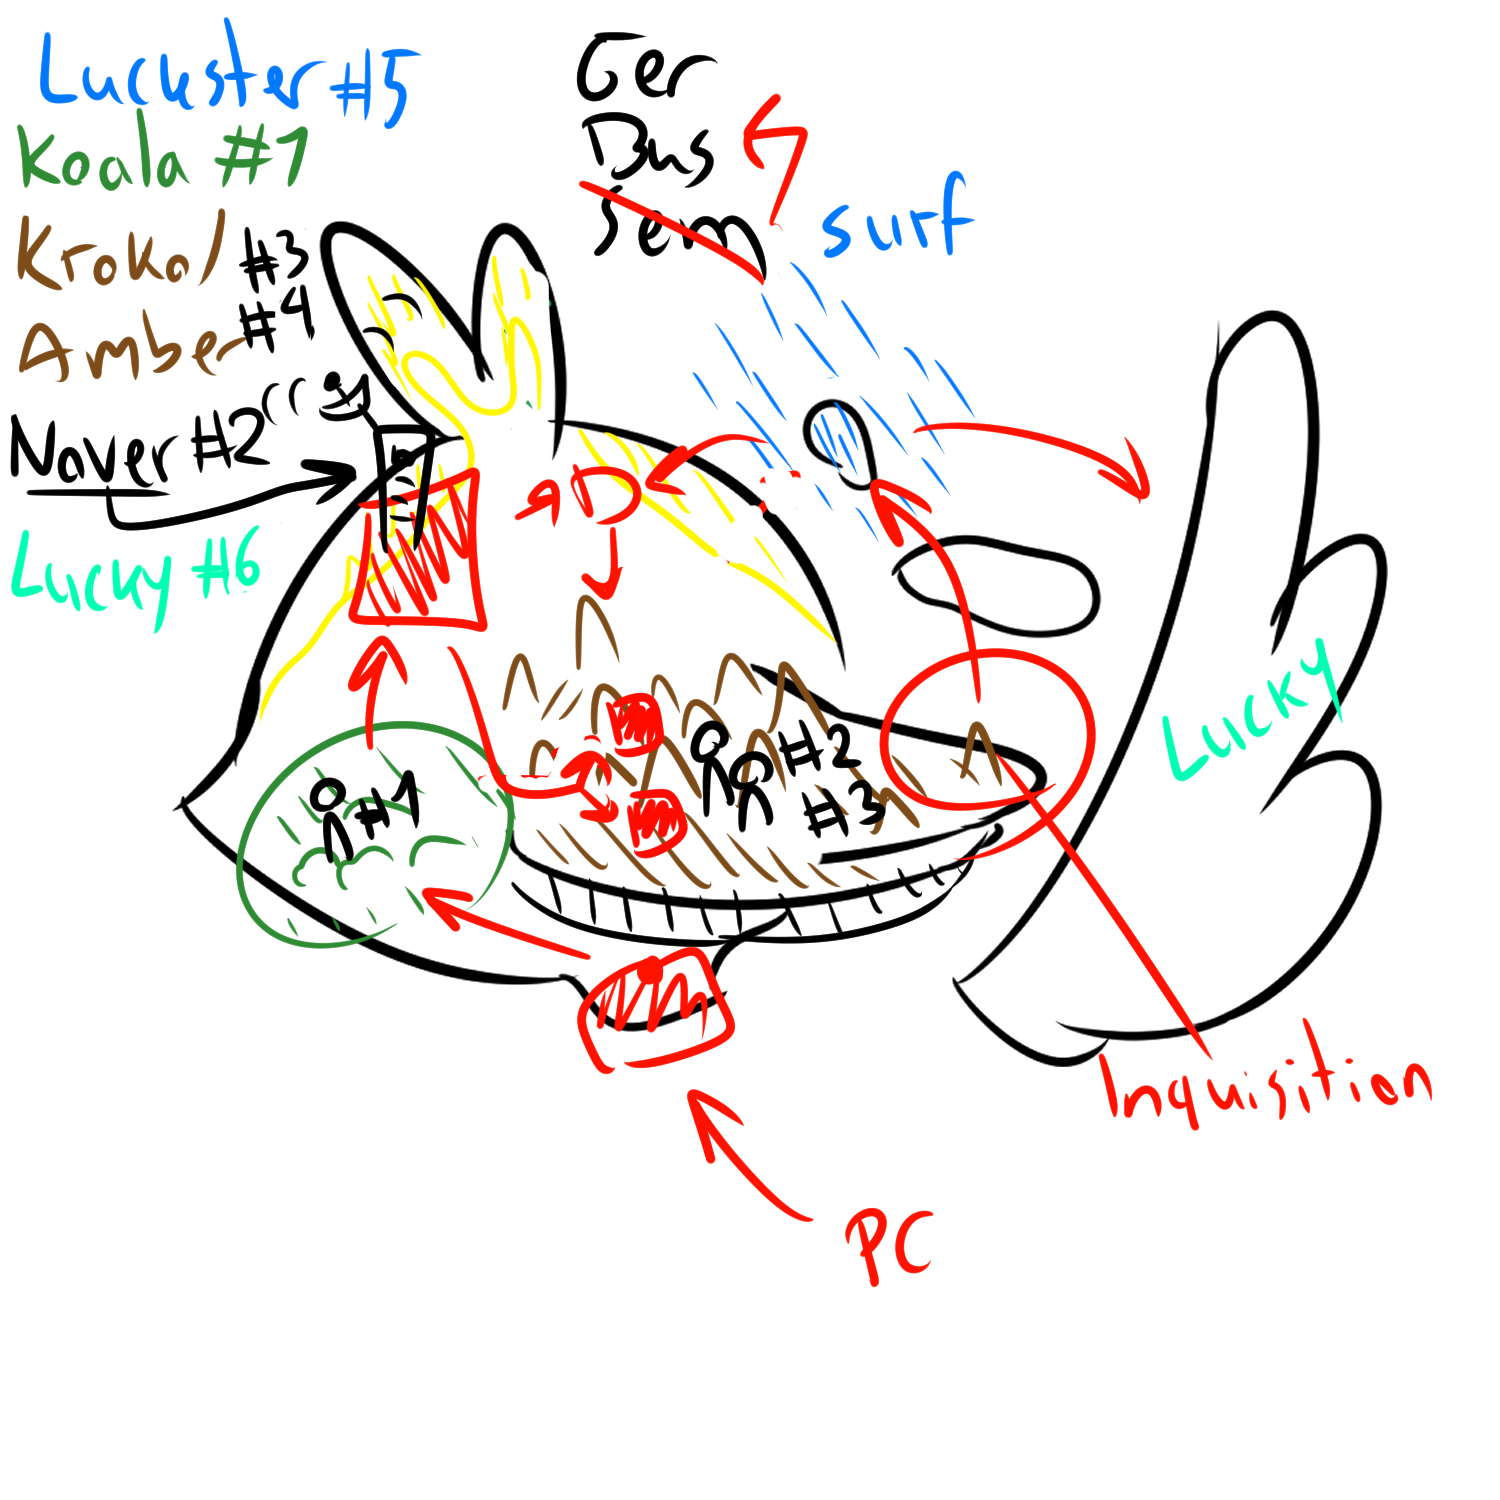 Luckster #5
Koala #1
Krokol #3
Amber #4
Naver #2
Lucky #6
Ger
Bus
Sem
surf
D
#1
#2
#3
Lucky
Inquisition
PC